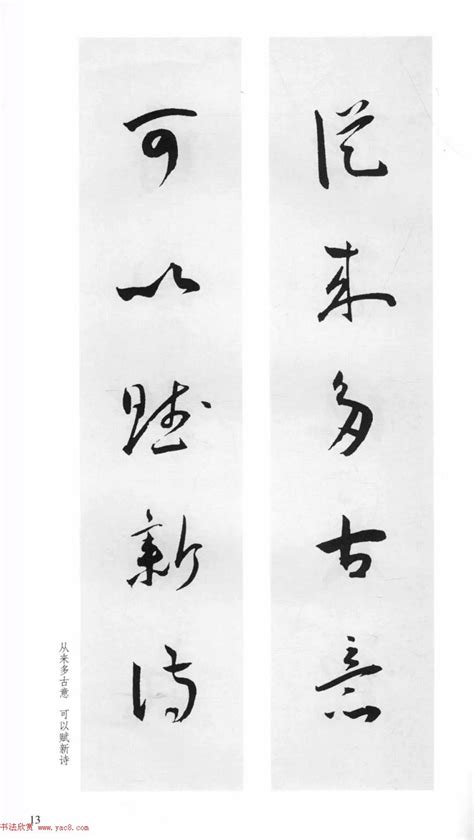 從来多古意
可以賦新詩
从来多古意 可以赋新诗
13
书法欣赏 www.yac8.com